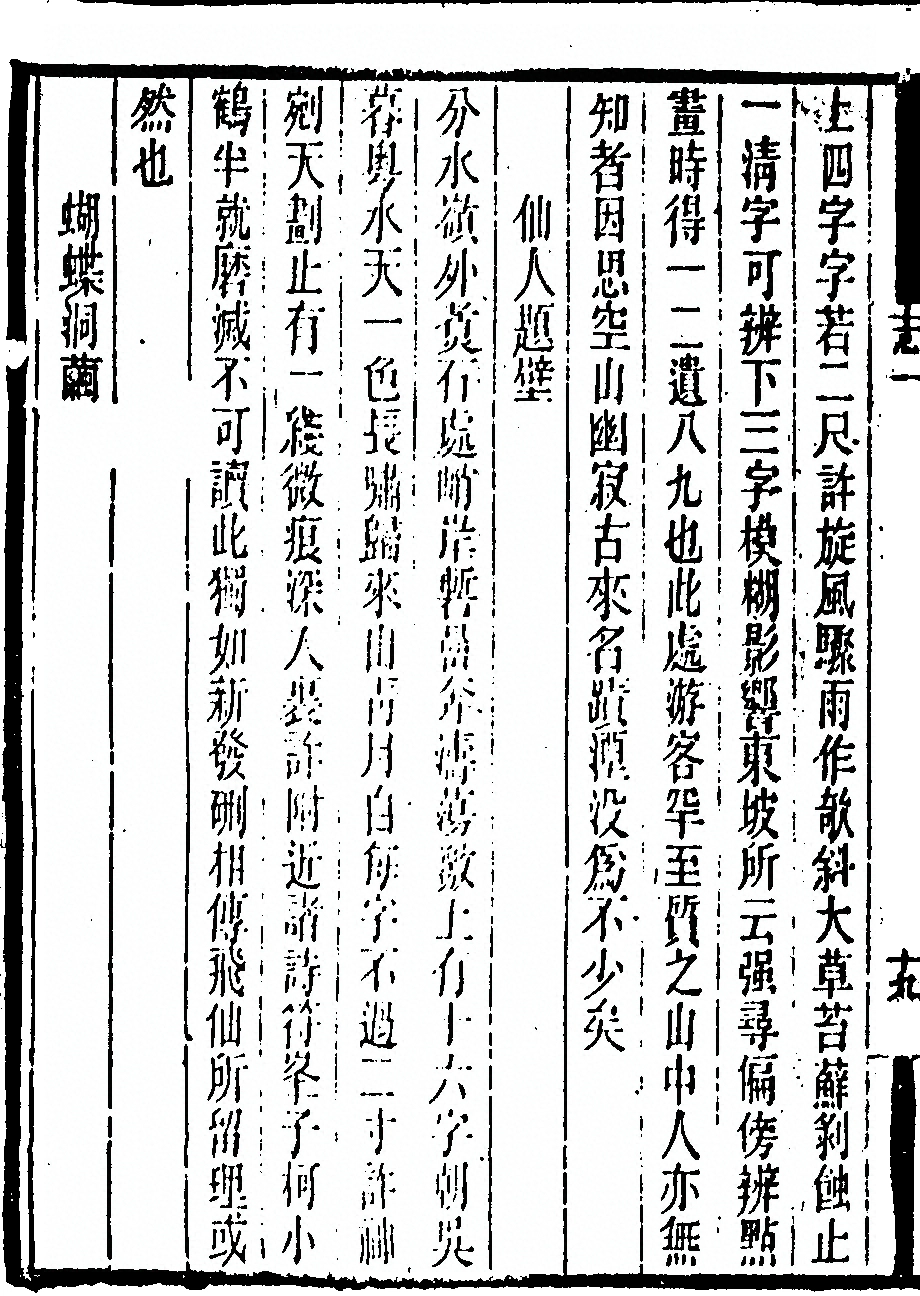 志一
十九
上四字字若二尺許旋風驟雨作欹斜大草苔蘚剝蝕止
一淸字可辨下三字模糊影響東坡所云强尋偏傍辨點
畫時得一二遺八九也此處游客罕至質之山中人亦無
知者因思空山幽寂古來名蹟湮没爲不少矣
仙人題壁
分水嶺外黄石處峭岸暫 上有十六字朝吳
暮粵水天一色長嘯歸來山靑月白每字不過二寸許神
剜天劃止有一綫微痕深入裏許附近諸詩符峚子柯小
鶴半就磨滅不可讀此獨如新發硎相傳飛仙所留理或
然也
蝴蝶洞繭